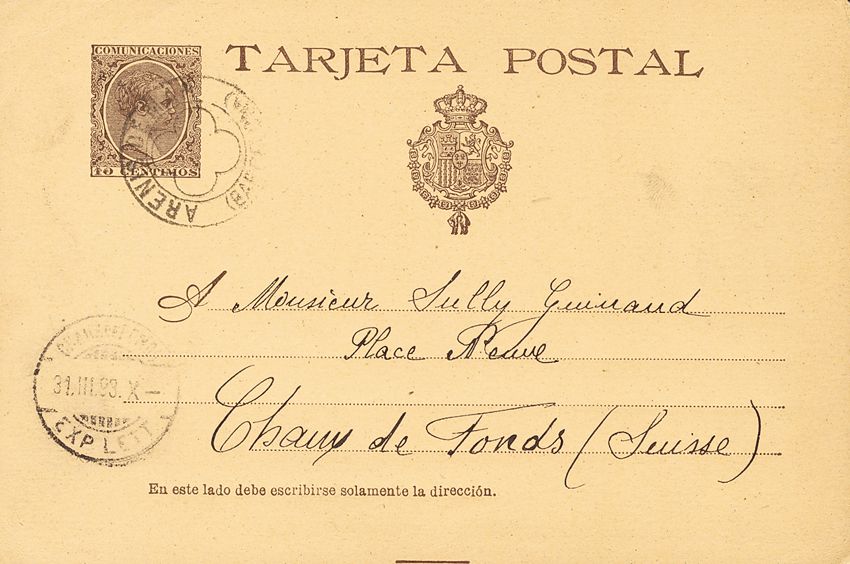 COMUNICACIONES
10 CENTIMOS
TARJETA POSTAL
A Monsieur Sully Guinand
Place Neuve
Chaux de Fonds (Suisse)
31.III.93.X–
EXP LETT
En este lado debe escribirse solamente la dirección.